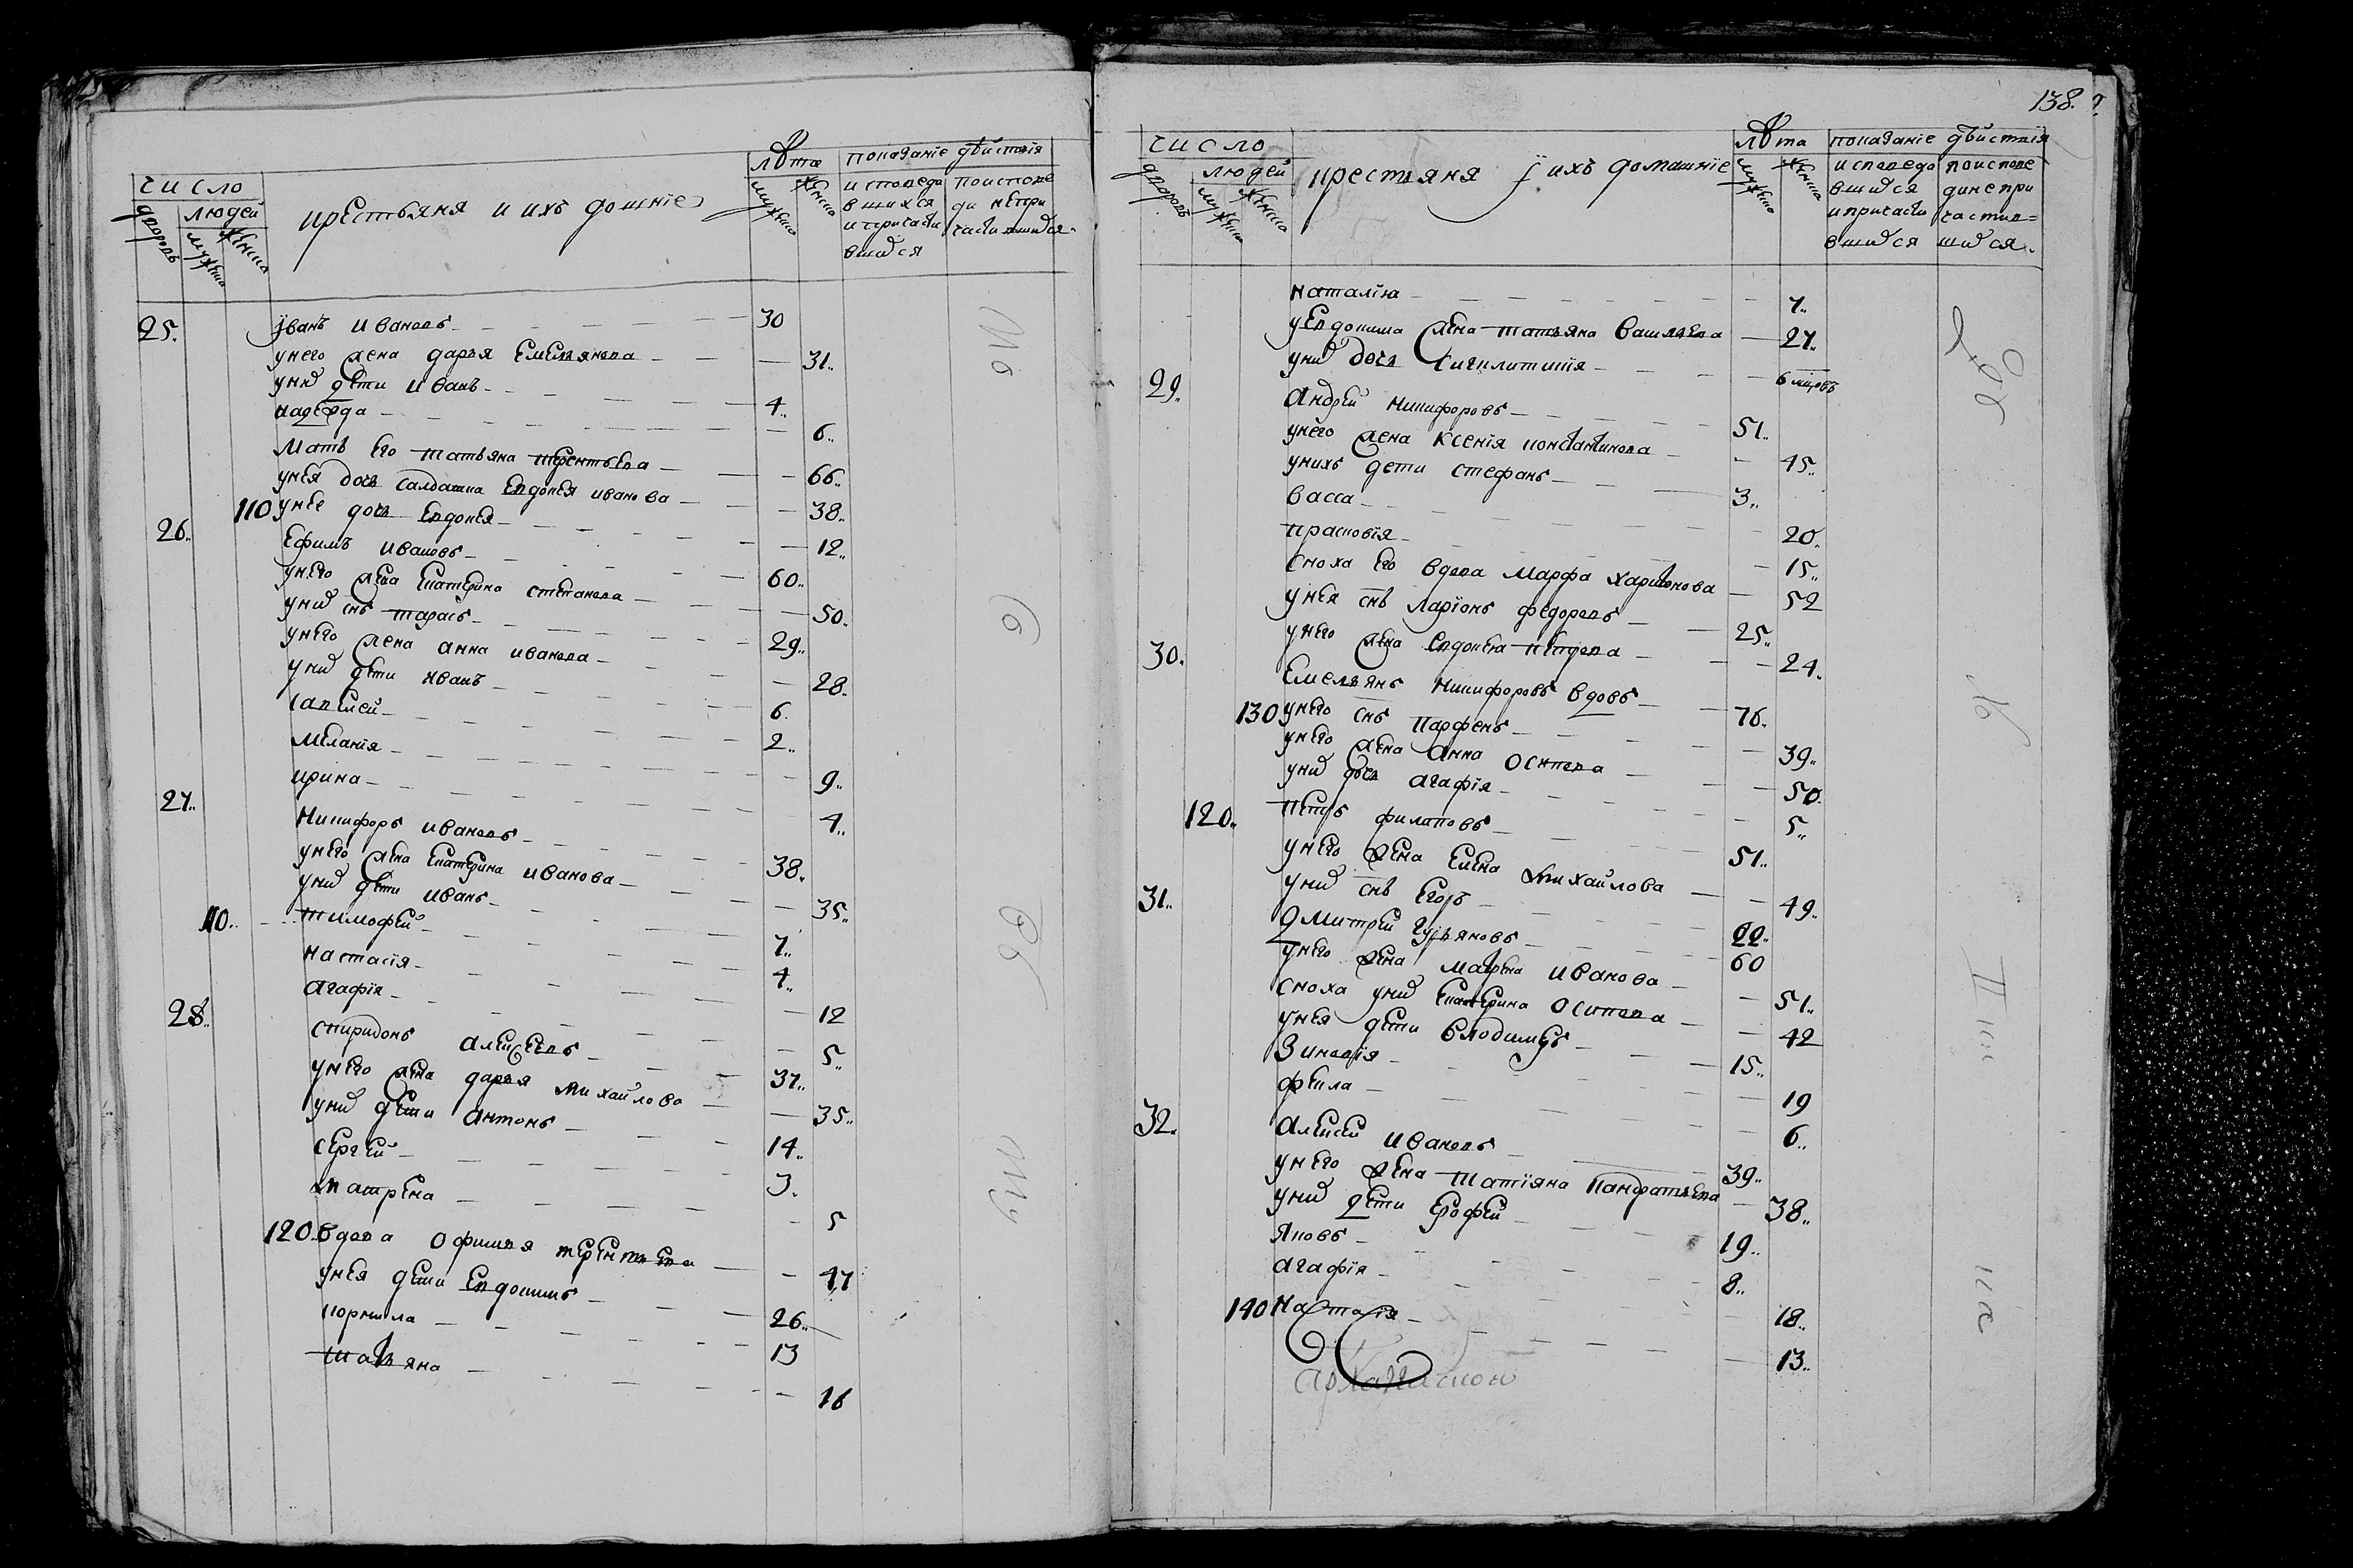 число
дворовъ
людей
мужеска
женска
крестьяня и ихъ домшніе
лѣта
мужеска
женска
показаніе дѣиствія
исповеда
вшихся
и причасти
вшихся
по испове
ди непри
частившихся
25. іванъ ивановъ 30
унего жена дарья Емельянова 31.
унихъ дети иванъ 4.
надежда 6.
Мать Его татьяна терентьева 66.
унея дочь салдатка Евдокея иванова 38.
110 унее дочь Евдокея 12.
26. Ефимъ ивановъ 60.
унего жена Екатерина степанова 50.
унихъ снъ тарасъ 29.
унего жена анна иванова 28.
унихъ дети иванъ 6.
савелей 2.
Меланія 9.
ирина 4.
27. Никифоръ ивановъ 38.
унего жена Екатерина иванова 35.
унихъ дети иванъ 7.
110. тимофей 4.
настасія 12
агафія 5.
28. спиридонъ алексеевъ 37.
унего жена дарья михайлова 35.
унихъ дети антонъ 14.
сергей 3.
матрена 5
120. вдова Офимья терентьева 47
унея дети Евдокимъ 26.
корнила 13
татьяна 16
138.
число
дворовъ
людей
мужеска
женска
крестьяня і ихъ домашніе
лѣта
мужеска
женска
показаніе дѣиствія
исповеда
вшихся
и причасти
вшихся
по испове
ди непри
частив=
шихся
наталья 7.
у Евдокима жена татьяна васильева 27.
унихъ дочь 6 мцовъ
29. андрей никифоровъ 51.
унего жена ксенія константинова 45.
унихъ дети стефанъ 3.
васса 20.
прасковія 15.
сноха Его вдова марфа харитонова 52
унея снъ ларіонъ федоровъ 25.
унего жена Евдокея 24.
30. Емельянъ никифоровъ вдовъ 76.
130 унего снъ парфенъ 39.
унего жена анна Осипова 50.
унихъ дочь агафія 5.
120. петръ филаповъ 51.
унего жена Елена михайлова 49.
унихъ снъ Егоръ 22.
31. дмитрей гурьяновъ 60
унего жена марина иванова 51.
сноха унихъ Екатерина Осипова 42
унея дети владимеръ 15.
Зиновія 19
фекла 6.
32. алексей ивановъ 39.
унего жена татіяна панфатьева 38.
унихъ дети Ерофей 19.
яковъ 8.
агафія 18.
140 настасія 13.